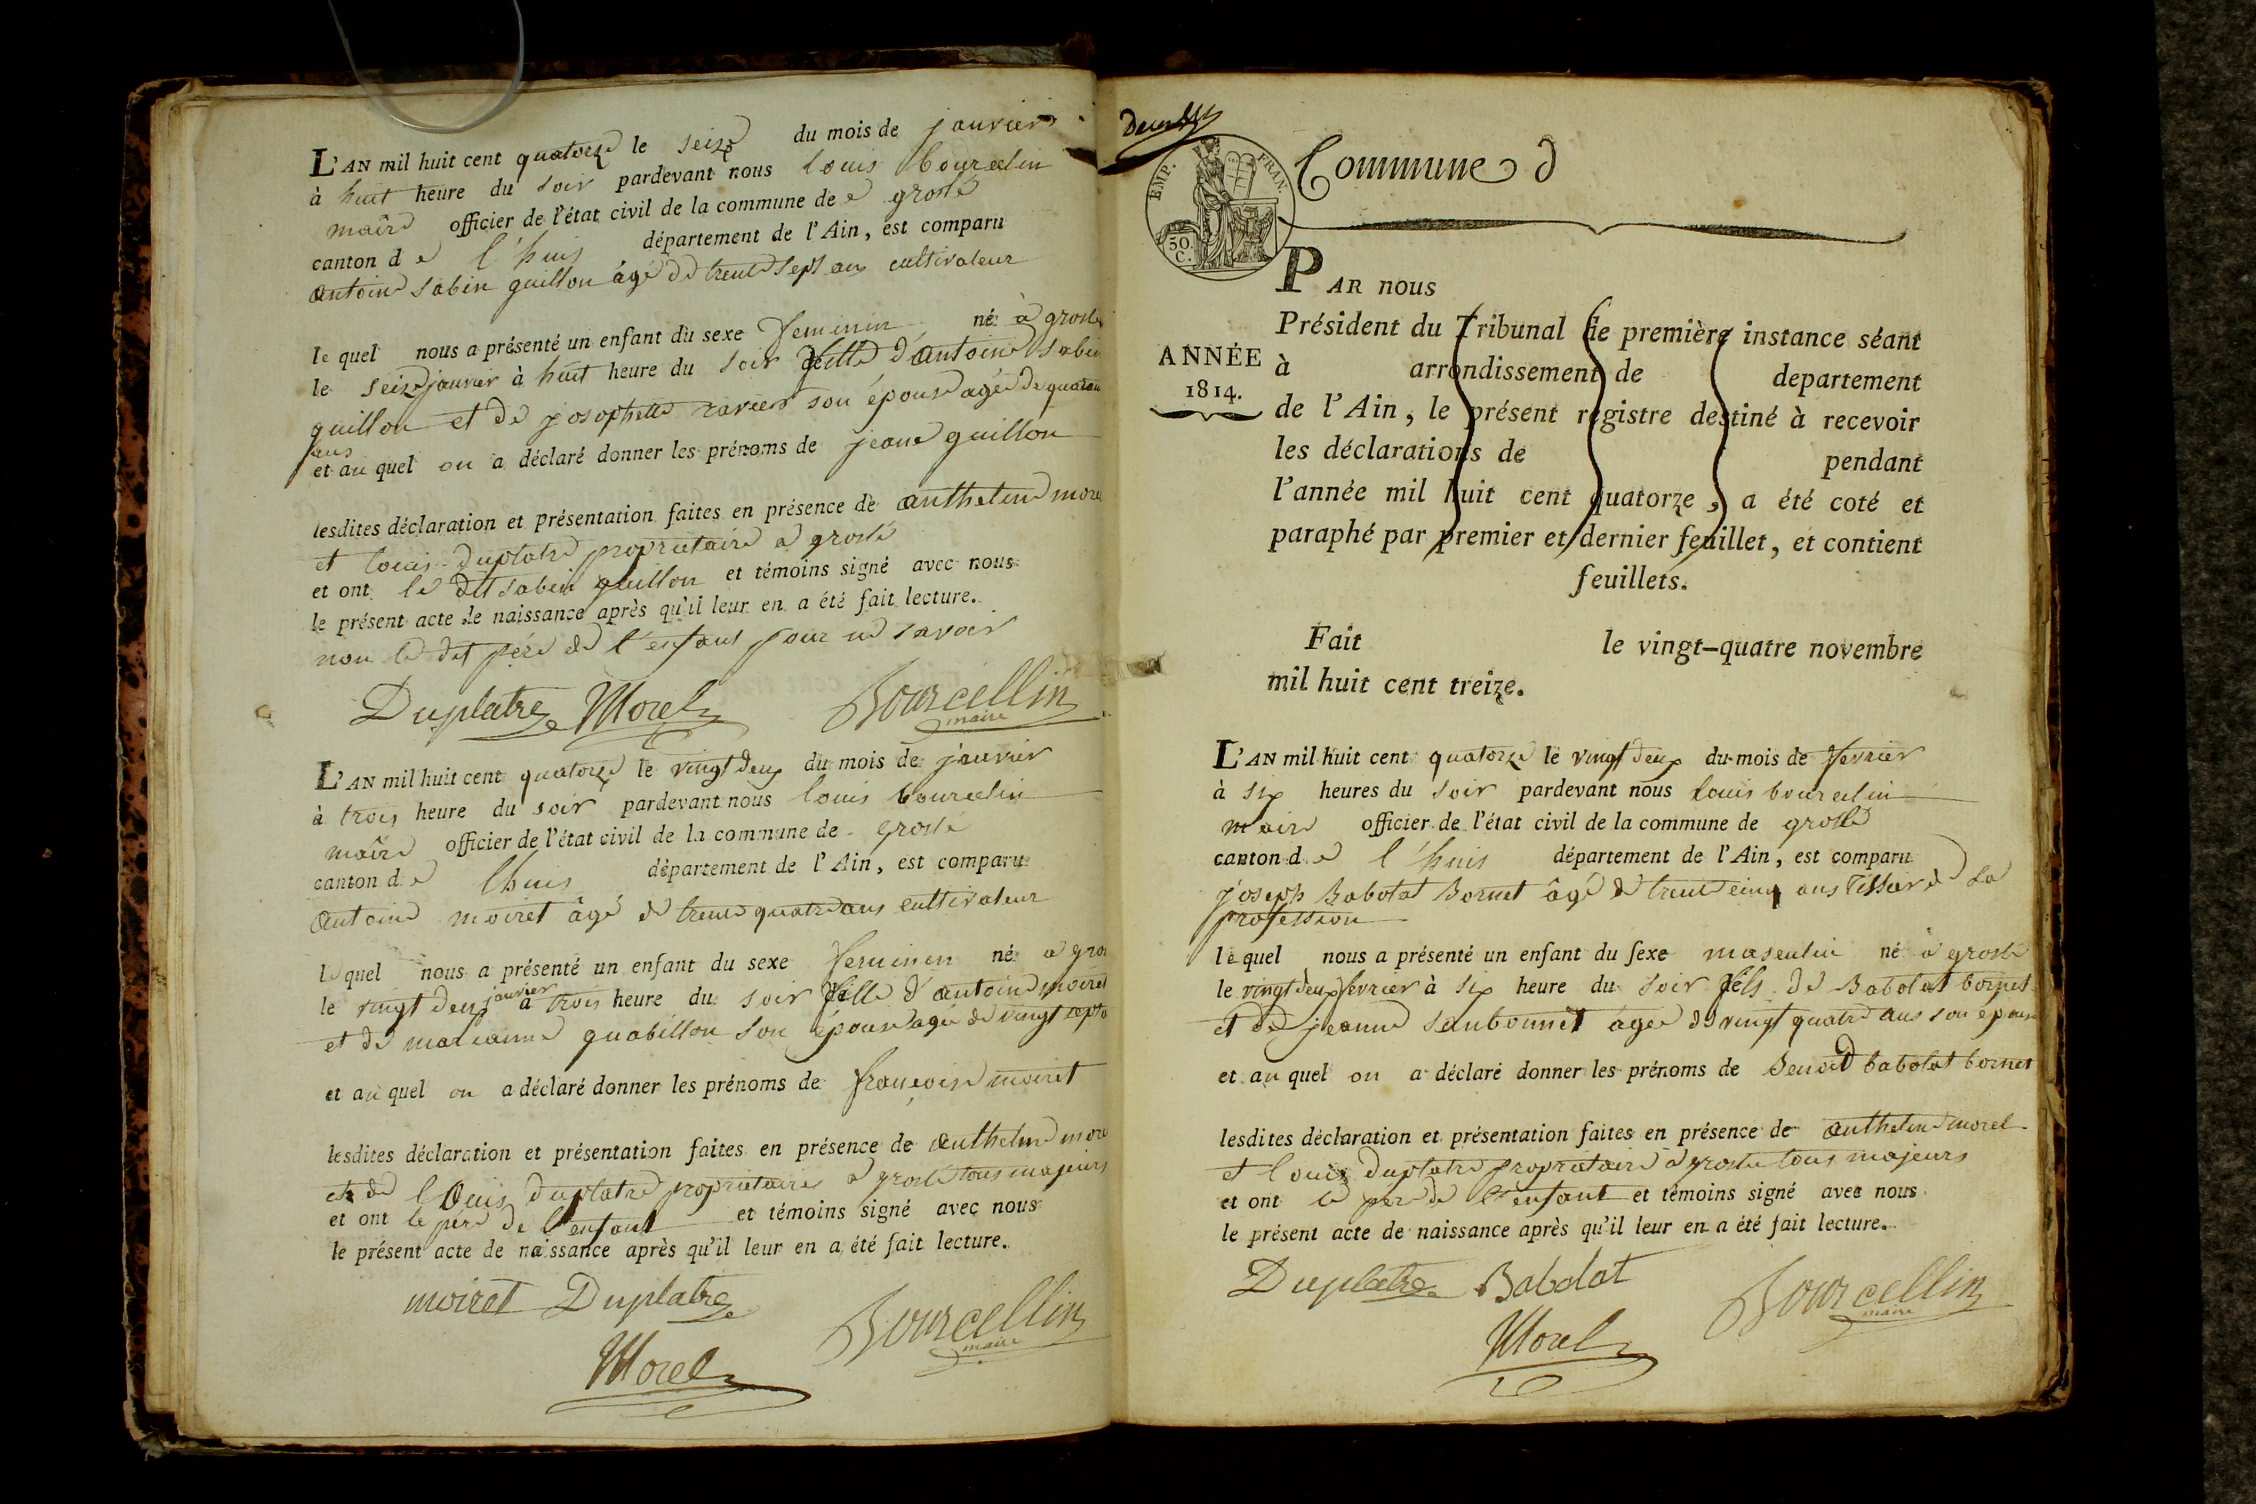 L'AN mil huit cent quatorze le seize du mois de janvier
à huit heure du soir pardevant nous louis bourcelin
maire officier de l'état civil de la commune de groslé
canton de l'huis département de l'Ain, est comparu
antoine sabin guillon âgé de trente sept ans cultivateur
le quel nous a présenté un enfant du sexe feminin né à groslé
le seize janvier à huit heure du soir fille d'antoine sabin
guillon et de josephette ravier son épouse agée de quarante
ans
et au quel on a déclaré donner les prénoms de jeane guillon
lesdites déclaration et présentation faites en présence de anthelme morel
et louis duplatre propriétaire a groslé
et ont le dit sabin guillon et témoins signé avec nous
le présent acte de naissance après qu'il leur en a été fait lecture.
non le dit père de l'enfant pour ne savoir
Duplatre Morel Bourcellin
maire
L'AN mil huit cent quatorze le vingt deux du mois de janvier
à trois heure du soir pardevant nous louis bourcelin
maire officier de l'état civil de la commune de groslé
canton de lhuis département de l'Ain, est comparu
antoine moiret âgé de trente quatre ans cultivateur
le quel nous a présenté un enfant du sexe feminin né a gros
le vingt deux janvier à trois heure du soir fille d'antoine moiret
et de marianne quabillon son épouse agée de vingt sept
et au quel on a déclaré donner les prénoms de françoise moiret
lesdites déclaration et présentation faites en présence de anthelme morel
et de louis duplatre propriétaires a groslé tous majeurs
et ont le père de l'enfant et témoins signé avec nous
le présent acte de naissance après qu'il leur en a été fait lecture.
moiret Duplatre
Bourcellin
maire
Morel
EMP. FRAN.
50. C.
Commune d
PAR nous
Président du Tribunal de première instance séant
ANNÉE
1814.
à arrondissement de departement
de l'Ain, le présent registre destiné à recevoir
les déclarations de pendant
l'année mil huit cent quatorze, a été coté et
paraphé par premier et dernier feuillet, et contient
feuillets.
Fait le vingt-quatre novembre
mil huit cent treize.
L'AN mil huit cent quatorze le vingt deux du mois de fevrier
à six heures du soir pardevant nous louis bourcelin
maire officier de l'état civil de la commune de groslé
canton de l'huis département de l'Ain, est comparu
joseph Babolat Bornet âgé de trente cinq ans tissar de sa
profession
le quel nous a présenté un enfant du sexe masculin né à groslé
le vingt deux fevrier à six heure du soir fils de Babolat bornet
et de jeanne sanbonnet agée de vingt quatre ans son épouse
et au quel on a déclaré donner les prénoms de Benoit babolat bornet
lesdites déclaration et présentation faites en présence de anthelme morel
et louis duplatre propriétaire a groslé tous majeurs
et ont le père de l'enfant et témoins signé avec nous
le présent acte de naissance après qu'il leur en a été fait lecture.
Duplatre Babolat
Bourcellin
maire
Morel